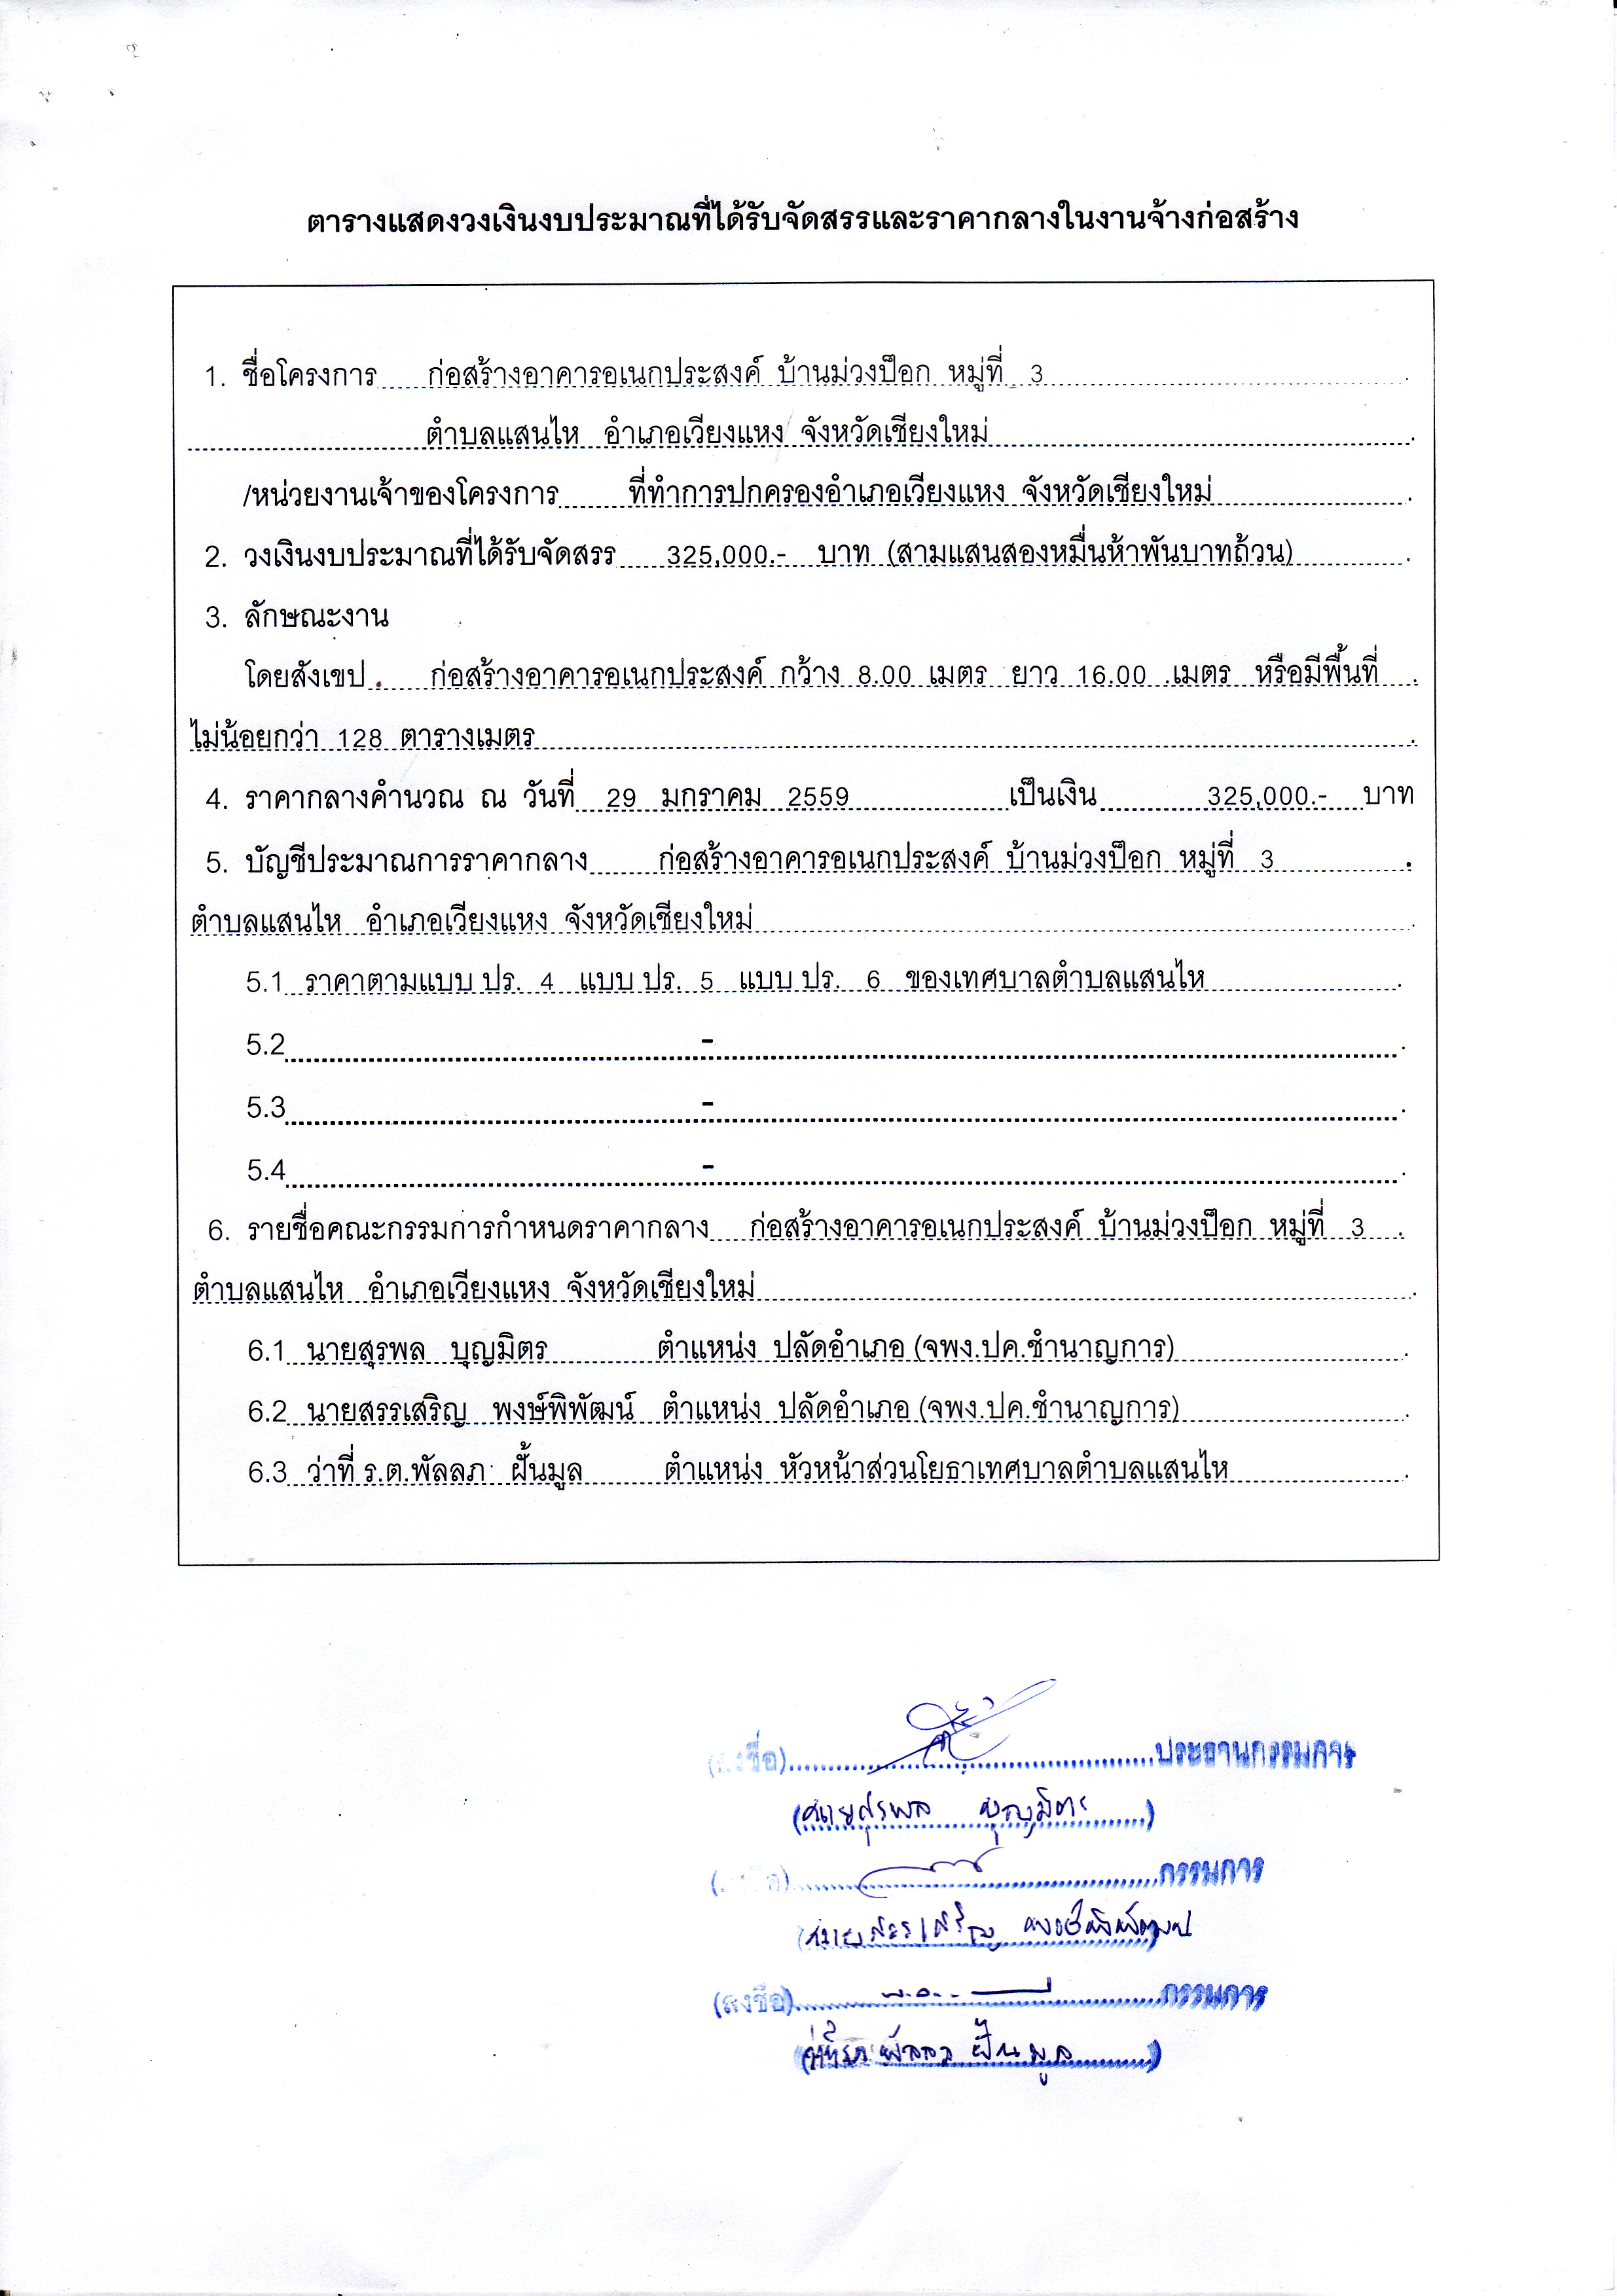 ตารางแสดงวงเงินงบประมาณที่ได้รับจัดสรรและราคากลางในงานจ้างก่อสร้าง
1. ชื่อโครงการ ก่อสร้างอาคารอเนกประสงค์ บ้านม่วงป็อก หมู่ที่ 3
ตำบลแสนไห อำเภอเวียงแหง จังหวัดเชียงใหม่
/หน่วยงานเจ้าของโครงการ ที่ทำการปกครองอำเภอเวียงแหง จังหวัดเชียงใหม่
2. วงเงินงบประมาณที่ได้รับจัดสรร 325,000.- บาท (สามแสนสองหมื่นห้าพันบาทถ้วน)
3. ลักษณะงาน
โดยสังเขป. ก่อสร้างอาคารอเนกประสงค์ กว้าง 8.00 เมตร ยาว 16.00 เมตร หรือมีพื้นที่
ไม่น้อยกว่า 128 ตารางเมตร
4. ราคากลางคำนวณ ณ วันที่ 29 มกราคม 2559 เป็นเงิน 325,000.- บาท
5. บัญชีประมาณการราคากลาง ก่อสร้างอาคารอเนกประสงค์ บ้านม่วงป็อก หมู่ที่ 3
ตำบลแสนไห อำเภอเวียงแหง จังหวัดเชียงใหม่
5.1 ราคาตามแบบ ปร. 4 แบบ ปร. 5 แบบ ปร. 6 ของเทศบาลตำบลแสนไห
5.2 -
5.3 -
5.4 -
6. รายชื่อคณะกรรมการกำหนดราคากลาง ก่อสร้างอาคารอเนกประสงค์ บ้านม่วงป็อก หมู่ที่ 3
ตำบลแสนไห อำเภอเวียงแหง จังหวัดเชียงใหม่
6.1 นายสุรพล บุญมิตร ตำแหน่ง ปลัดอำเภอ (จพง.ปค.ชำนาญการ)
6.2 นายสรรเสริญ พงษ์พิพัฒน์ ตำแหน่ง ปลัดอำเภอ (จพง.ปค.ชำนาญการ)
6.3 ว่าที่ ร.ต.พัลลภ ฝั้นมูล ตำแหน่ง หัวหน้าส่วนโยธาเทศบาลตำบลแสนไห
(ลงชื่อ) ประธานกรรมการ
(นายสุรพล บุญมิตร)
(ลงชื่อ) กรรมการ
(นายสรรเสริญ พงษ์พิพัฒน์)
(ลงชื่อ) กรรมการ
(ว่าที่ ร.ต. พัลลภ ฝั้นมูล)